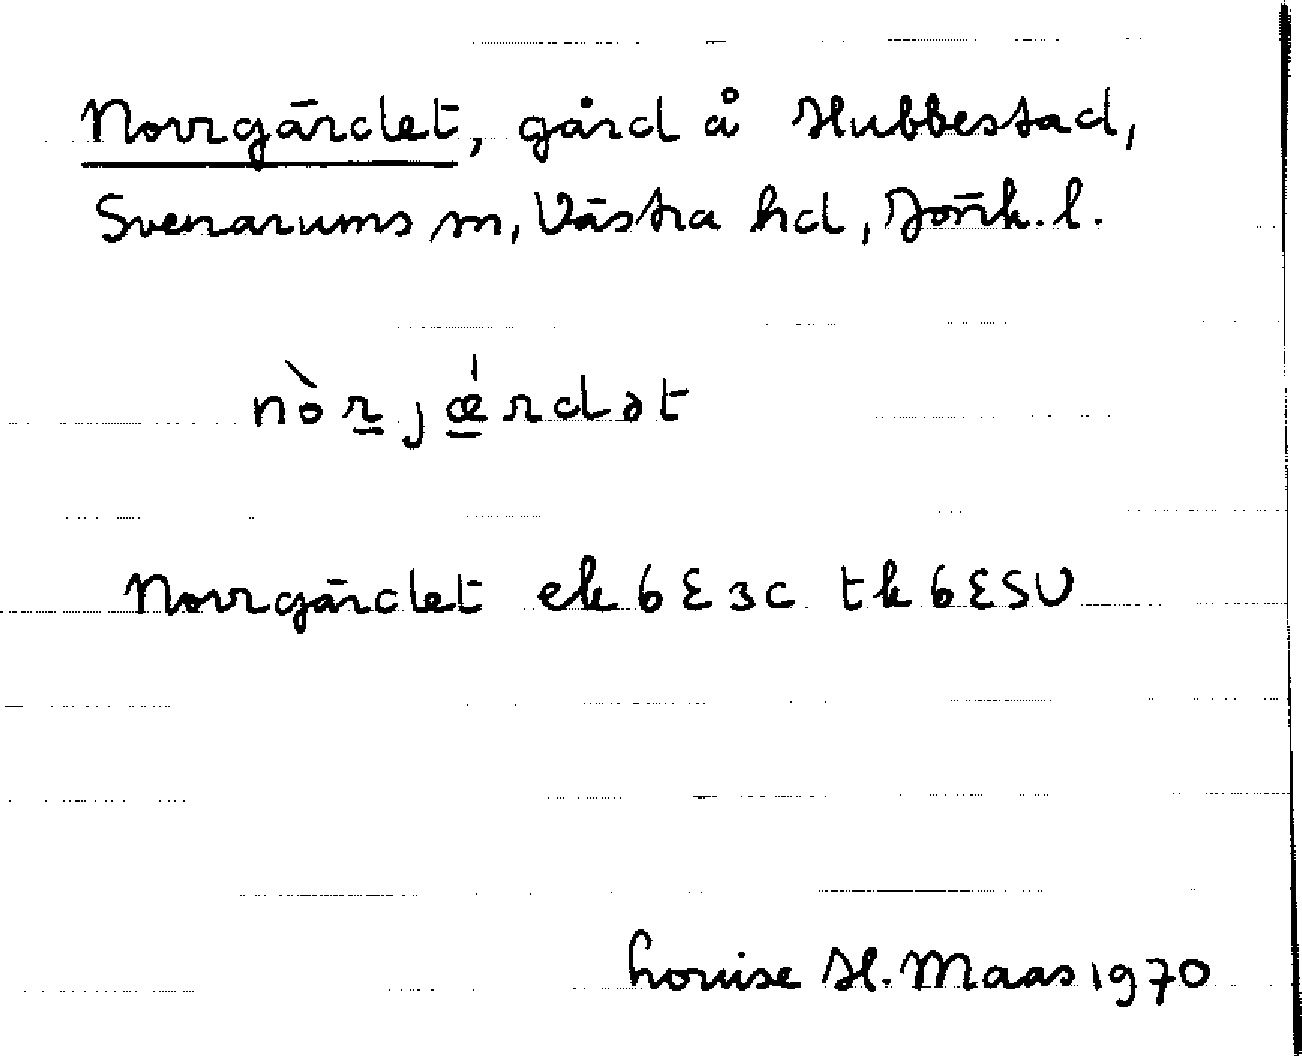 Norrgärdet, gård å Hubbestad,
Svenarums sn, Västra hd, Jönk. l.
nòrjǽrdət
Norrgärdet ek 6E3c tk 6ESV
Louise H. Maas 1970